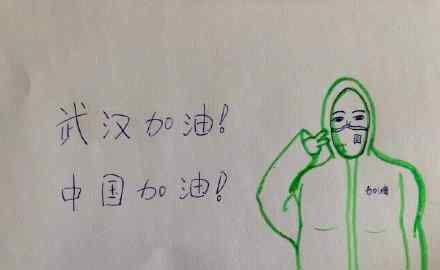 武汉加油!
中国加油!
加油